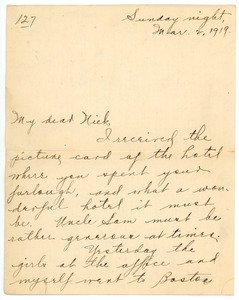 127
Sunday night,
Mar. 2, 1919.
My dear Nick,
I received the
picture card of the hotel
where you spent your
furlough, and what a won-
derful hotel it must
be. Uncle Sam must be
rather generous at times.
Yesterday the
girls at the office and
myself went to Boston